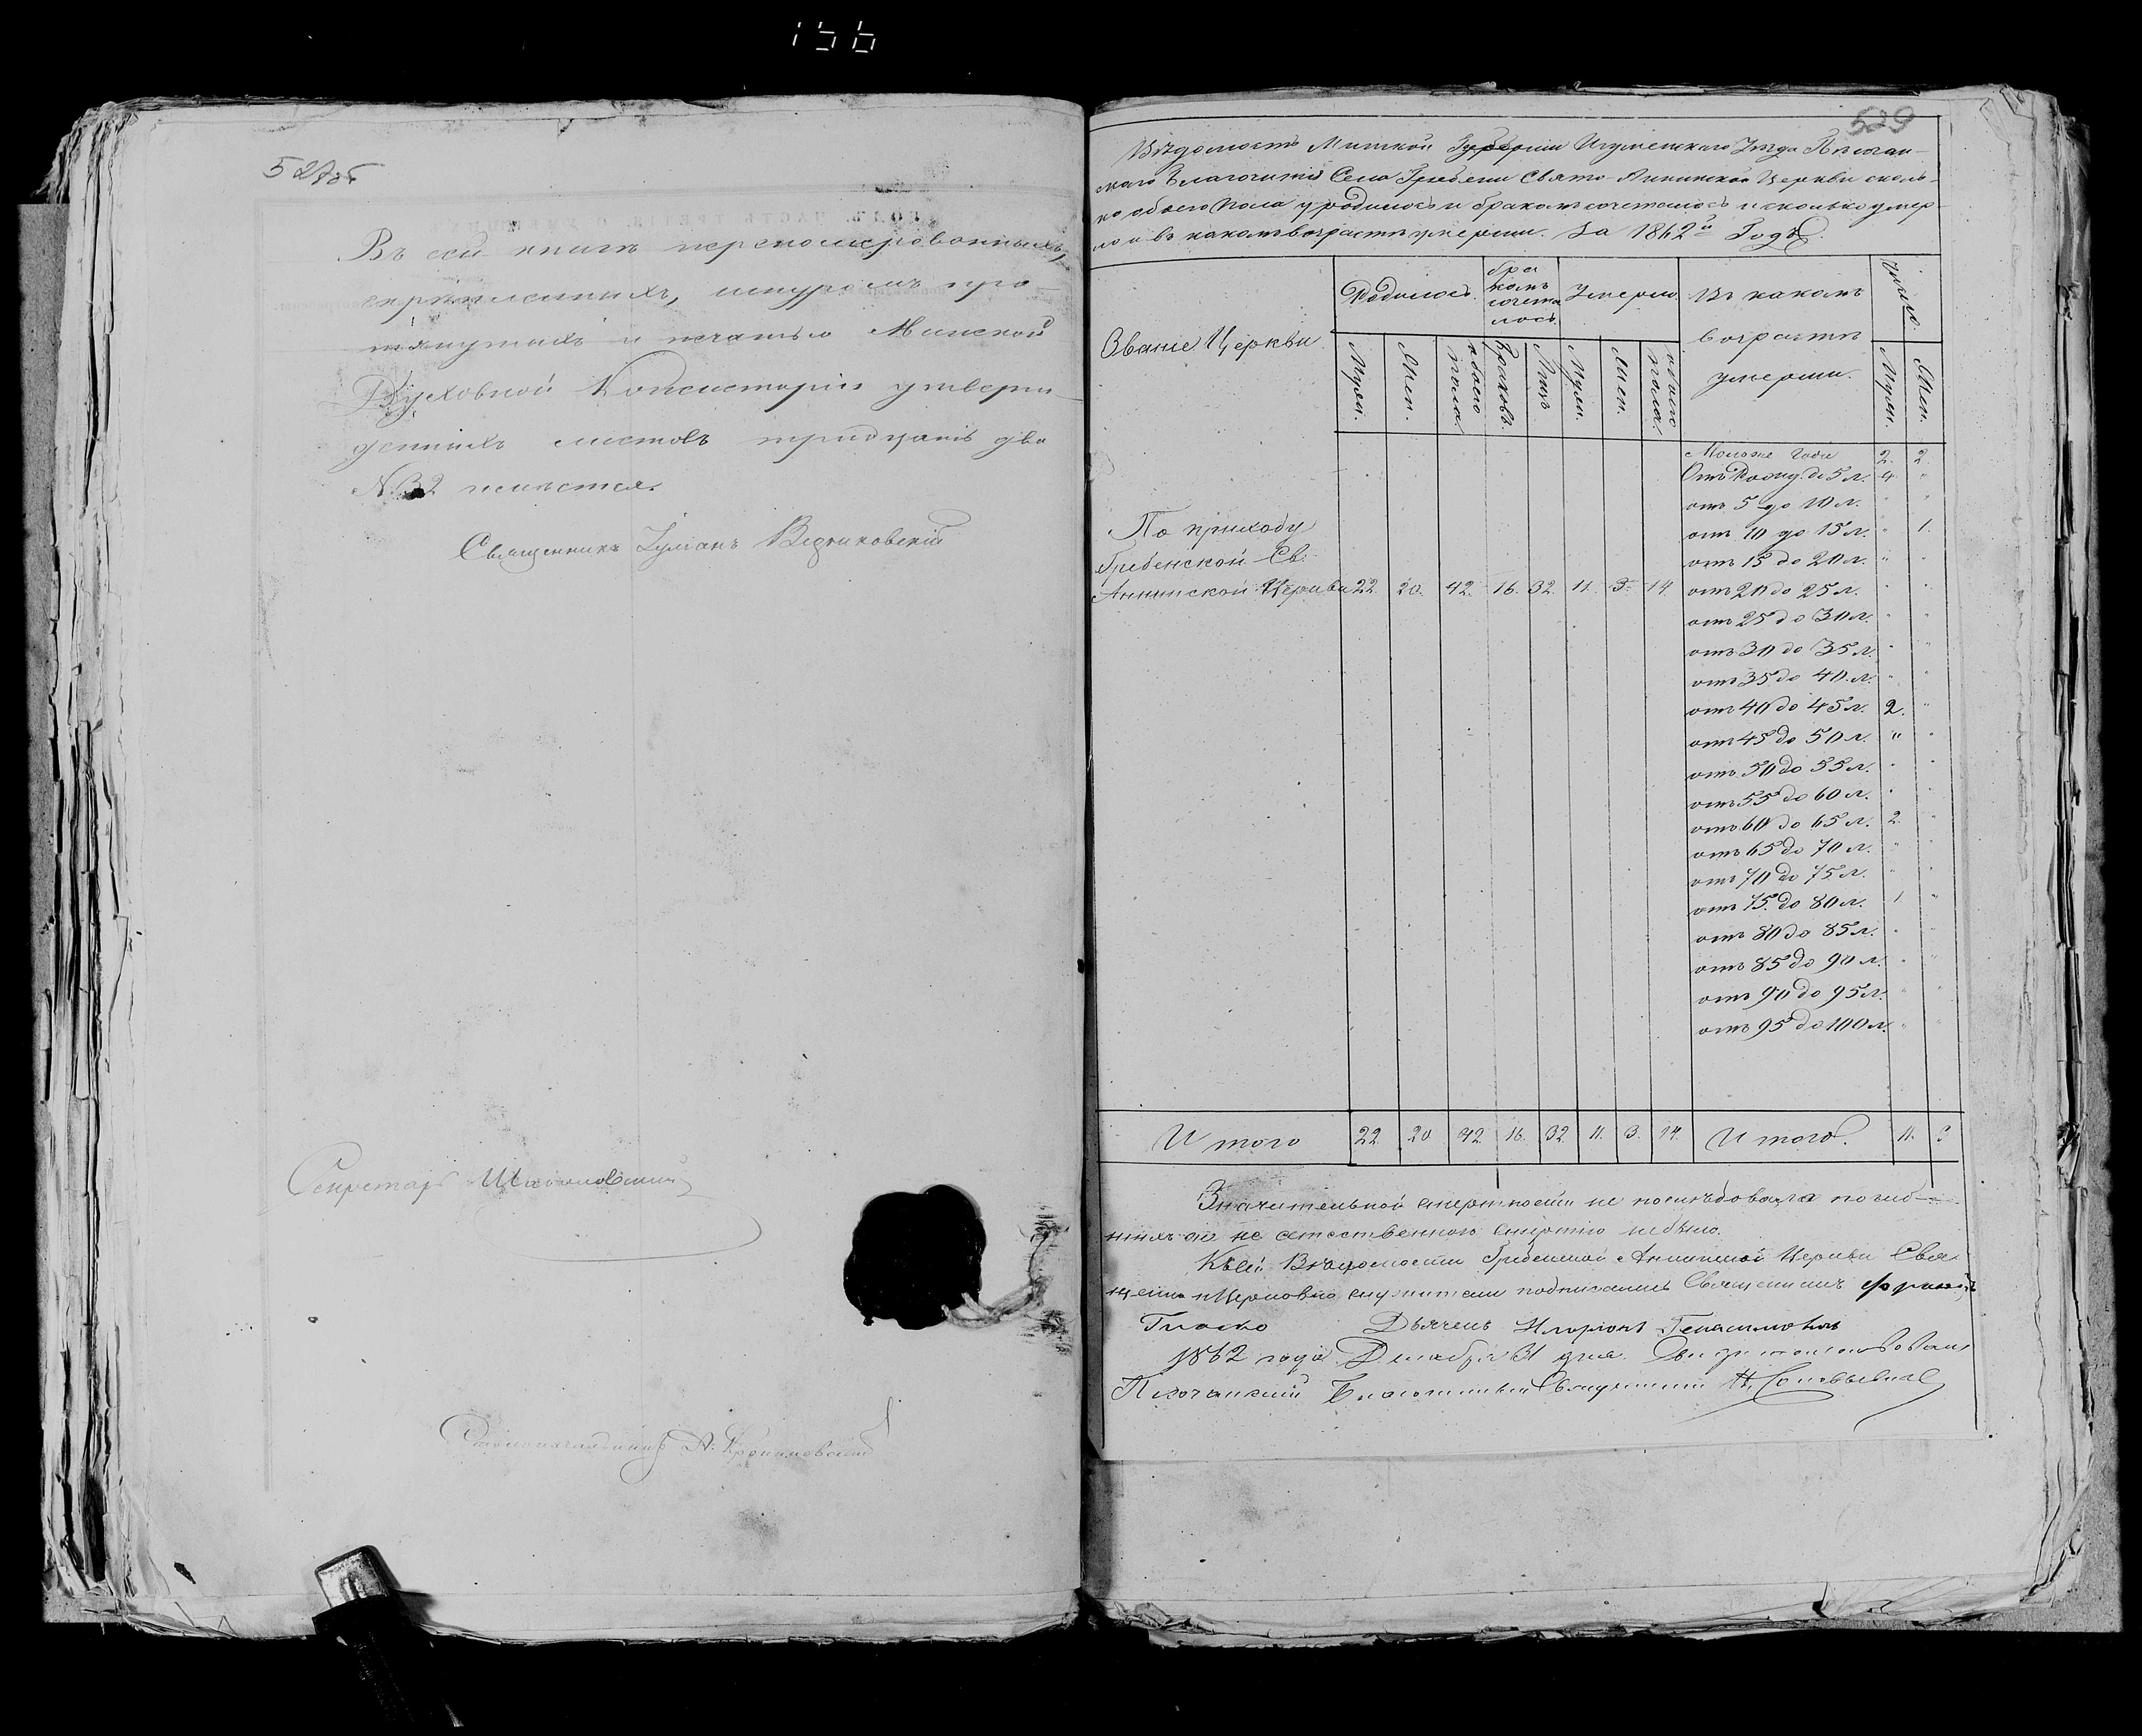 156
528об
Въ сей книгѣ перенумерованныхъ,
скрѣпленныхъ, шнуромъ про-
тянутыхъ и печатью Минской
Духовной Консисторіи утверж-
денныхъ листовъ тридцать два
№ 32 имѣется.
Священникъ Іуліанъ
Секретарь
Столоначальникъ А.
529
Вѣдомость Минской Губерніи Игуменскаго Уѣзда Пѣсочан-
скаго Благочинія Села Гребени Свято-Аннинской Церкви сколь-
ко обоего пола уродилось и бракомъ сочеталось и сколько умер-
ло и въ какомъ возрастѣ умерши. За 1862й Годъ.
Званіе Церкви
Родилось.
бра
комъ
сочета
лось.
Умерло.
Въ какомъ
возрастѣ
умерши.
Число.
Муж.
Жен.
обоего
пола.
Браковъ.
Лицъ
Муж.
Жен.
обоего
пола.
Муж.
Жен.
Моложе Года 2. 2
Отъ Рожд. до 5 л. 4 "
отъ 5 до 10 л. " "
отъ 10 до 15 л. " 1.
отъ 15 до 20 л. " "
По приходу
Гребенской Св.
Аннинской Церкви 22. 20. 42. 16. 32. 11. 3. 14. отъ 20 до 25 л. " "
отъ 25 до 30 л. " "
отъ 30 до 35 л. " "
отъ 35 до 40 л. " "
отъ 40 до 45 л. 2. "
отъ 45 до 50 л. " "
отъ 50 до 55 л. " "
отъ 55 до 60 л. " "
отъ 60 до 65 л. 2. "
отъ 65 до 70 л. " "
отъ 70 до 75 л. " "
отъ 75 до 80 л. 1 "
отъ 80 до 85 л. " "
отъ 85 до 90 л. " "
отъ 90 до 95 л. " "
отъ 95 до 100 л. " "
Итого 22 20 42 16. 32 11. 3. 14. Итого. 11. 3
Значительной смертности не послѣдовало погиб-
шихъ не естественною смертію небыло.
Къ сей Вѣдомости Гребенской Аннинской Церкви Свя-
щенно и Церковно служители подписались Священникъ
Гласко Дьячекъ Иларіонъ
1862 года Декабря 31 дня.
Пѣсочанскій Благочинный Священникъ